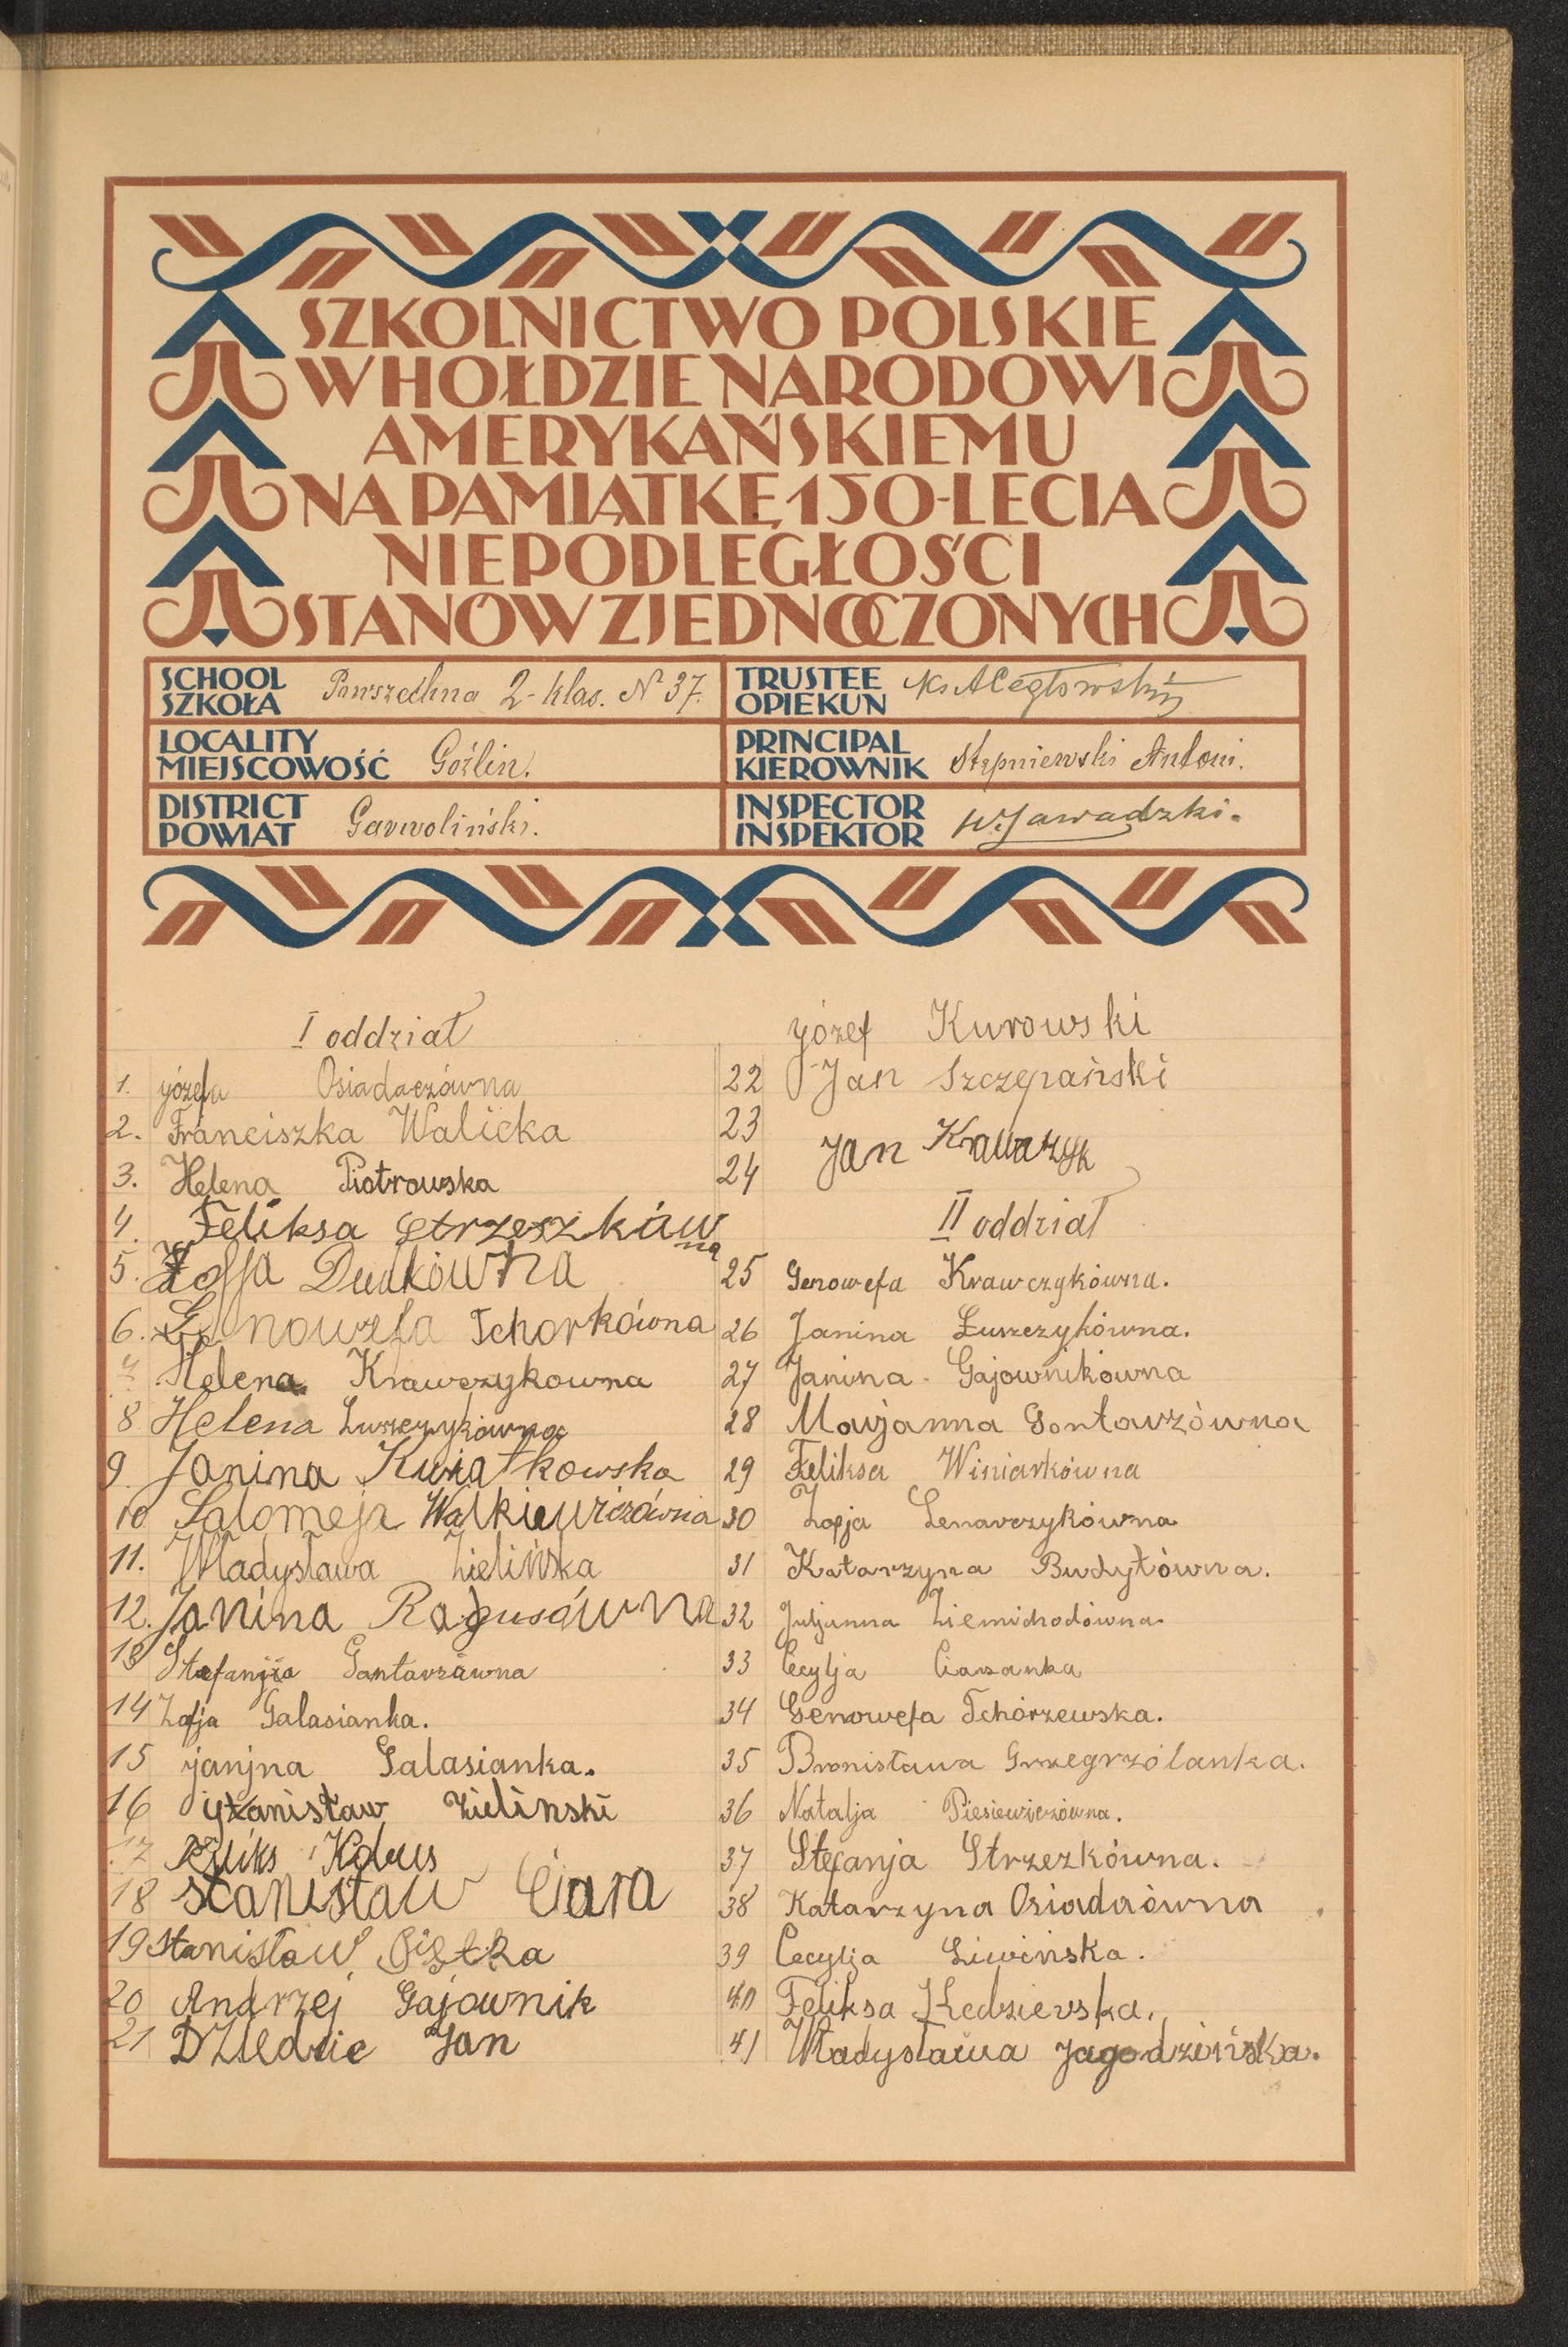 SZKOLNICTWO POLSKIE
W HOŁDZIE NARODOWI
AMERYKAŃSKIEMU
NA PAMIĄTKĘ 150-LECIA
NIEPODLEGŁOŚCI
STANÓW ZJEDNOCZONYCH
SCHOOL
SZKOŁA Powszechna 2-klas. N 37.
TRUSTEE
OPIEKUN Ks A Cegłowski
LOCALITY
MIEJSCOWOŚĆ Goźlin.
PRINCIPAL
KIEROWNIK Stępniewski Antoni.
DISTRICT
POWIAT Garwoliński.
INSPECTOR
INSPEKTOR W. Zawadzki.
I oddział
1. józefa Osiadaczówna
2. Franciszka Walicka
3. Helena Piotrowska
4. Feliksa Strzeszków
na
5. Zofja Dudkówna
6. Genowefa Tchorkówna
7 Helena Krawczykowna
8 Helena Luszczykówna
9. Janina Kwiatkowska
10 Salomeja Walkiewiczówna
11. Władysława Zielińska
12. Janina Ragusówna
13 Stefanja Gontarzówna
14 Zofja Galasianka.
15 janjna Galasianka.
16 Stanisław Zieliński
17 Feliks Kobus
18 stanisław Ciara
19 Stanisław Piętka
20 Andrzej Gajownik
21 Dziedzic Jan
józef Kurowski
22 Jan Szczepański
23
24 Jan Krawczyk
II oddział
25 Genowefa Krawczykówna.
26 Janina Łuszczykówna.
27 Janina Gajownikówna
28 Marjanna Gontarzówna
29 Feliksa Winiarkówna
30 Zofja Lenarczykówna
31 Katarzyna Budytówna.
32 Juljanna Ziemichodówna
33 Cecylja Ciaranka
34 Genowefa Tchórzewska.
35 Bronisława Grzegrzólanka.
36 Natalja Piesiewiczówna.
37 Stefanja Strzezkówna.
38 Katarzyna Osiadaówna
39 Cecylja Liwińska.
40 Feliksa Kędzierska.
41 Władysława Jagodzińska.